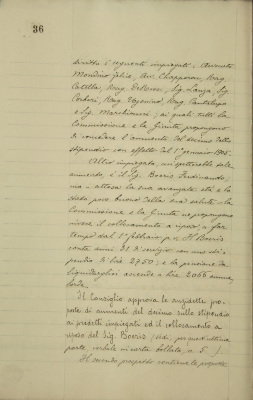 36
diritto i seguenti impiegati:
Mondino Felice, Avv. Chapperon, Rag.
Catella, Rag. Sig. Lanza, Sig.
Rag. Rag. Cantalupo
e Sig. Marchisone; ai quali tutti la
Commissione e la Giunta propongono
di accordare l'aumento del decimo dello
stipendio con effetto dal 1° gennaio
Altro impiegato, cui spetterebbe tale
aumento, è il Sig. Borris Ferdinando;
ma attesa la sua avanzata età e lo
stato poco buono della sua salute, la
Commissione e la Giunta ne propongono
invece il collocamento a riposo a far
tempo dal 1° febbraio p. v. Il Borris
conta anni di servizio con uno sti-
pendio di lire 2750; e la pensione da
liquidargli ascende a lire 2066 annue,
lorde.
Il Consiglio approva le anzidette pro-
poste di aumenti del decimo sullo stipendio
ai predetti impiegati ed il collocamento a
riposo del Sig. Borris (vedi, per quest'ultima
parte, verbale in carta bollata, n. 5.)
Il secondo prospetto contiene le proposte